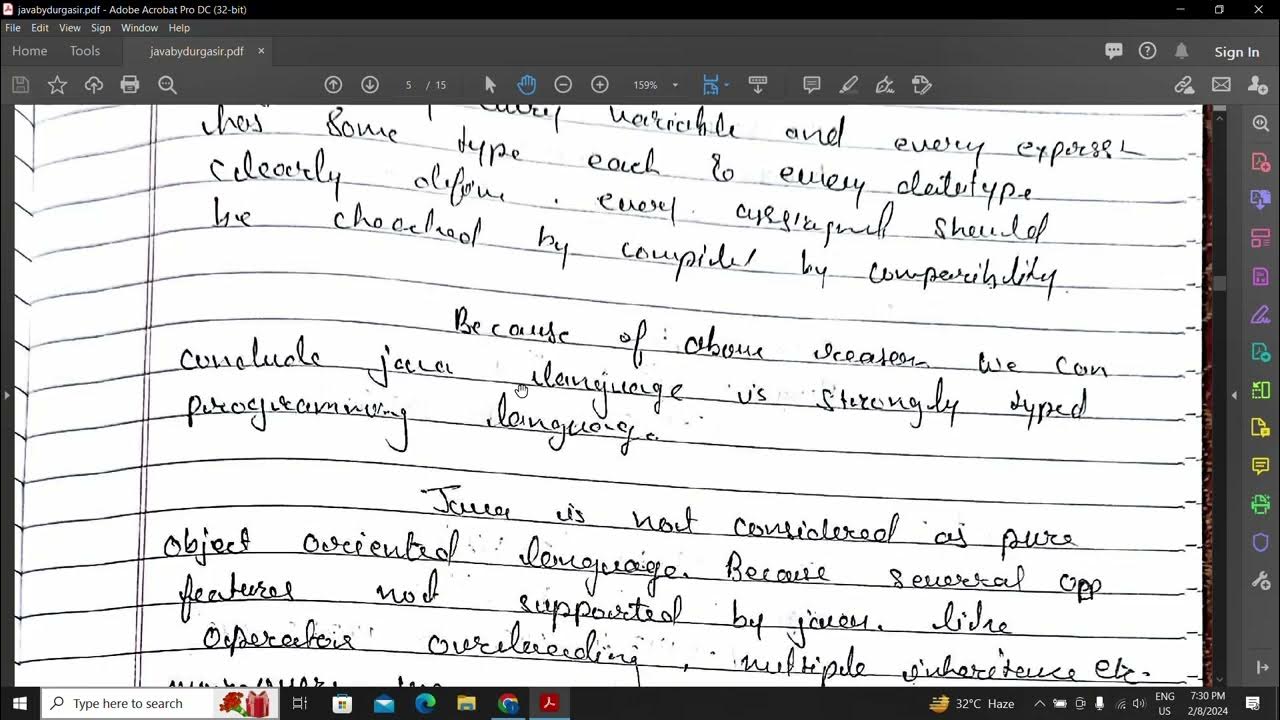 javabydurgasir.pdf - Adobe Acrobat Pro DC (32-bit)
File Edit View Sign Window Help
Home Tools javabydurgasir.pdf × Sign In
5 / 15 159%
every variable and every express
has some type each & every datatype
clearly define. every assigned should
be checked by compiler by comparibility.
Because of above reason we can
conclude java language is strongly typed
programming language.
Java is not considered as pure
object oriented language. Because several opp
features not supported by java. like
operator overloading, multiple inheritence etc.
Type here to search
32°C Haze
ENG
US
7:30 PM
2/8/2024